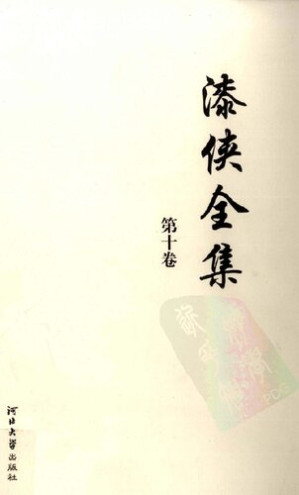 漆侠全集
第十卷
河北大学出版社
PDG